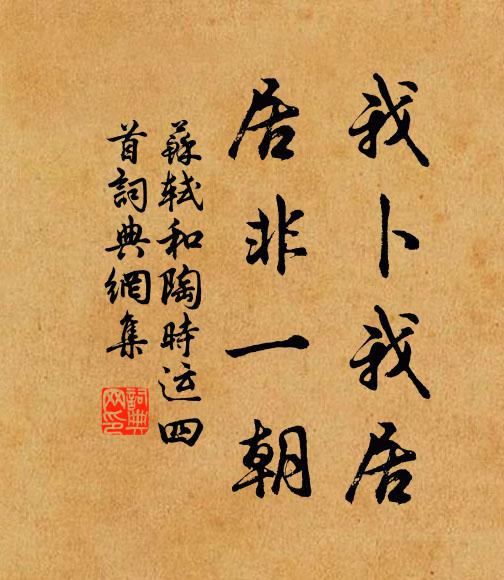 我卜我居
居非一朝
蘇軾和陶時运四
首詞典網集
詞典网印